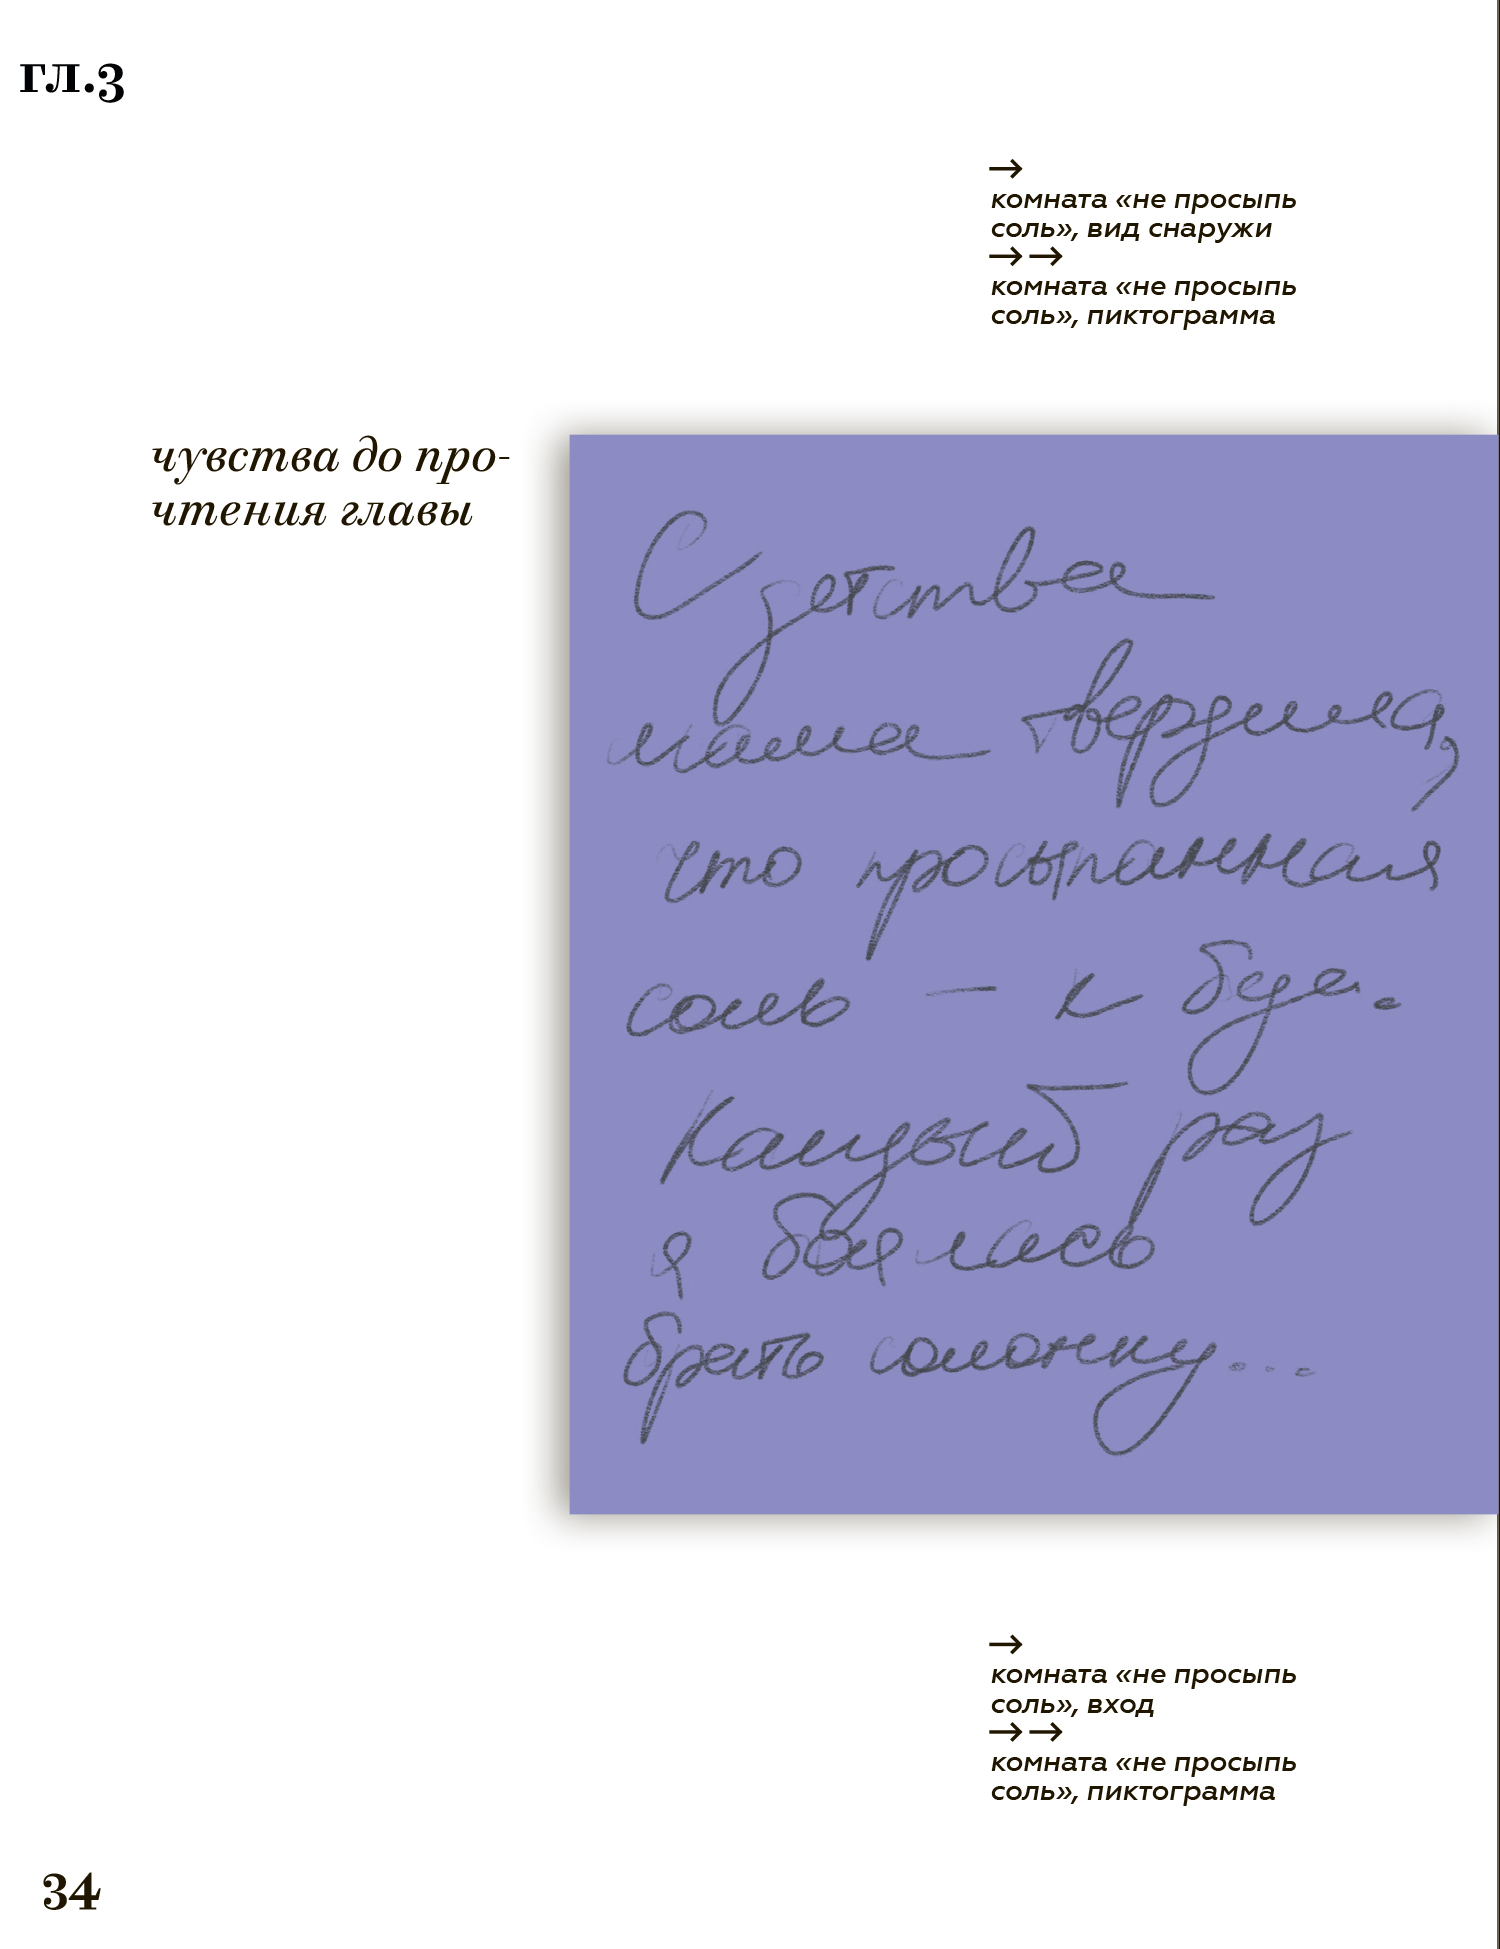 гл.3
→
комната «не просыпь
соль», вид снаружи
→→
комната «не просыпь
соль», пиктограмма
чувства до про-
чтения главы
С детства
мама твердила,
что просыпанная
соль — к беде.
Каждый раз
я боялась
брать солонку...
→
комната «не просыпь
соль», вход
→→
комната «не просыпь
соль», пиктограмма
34